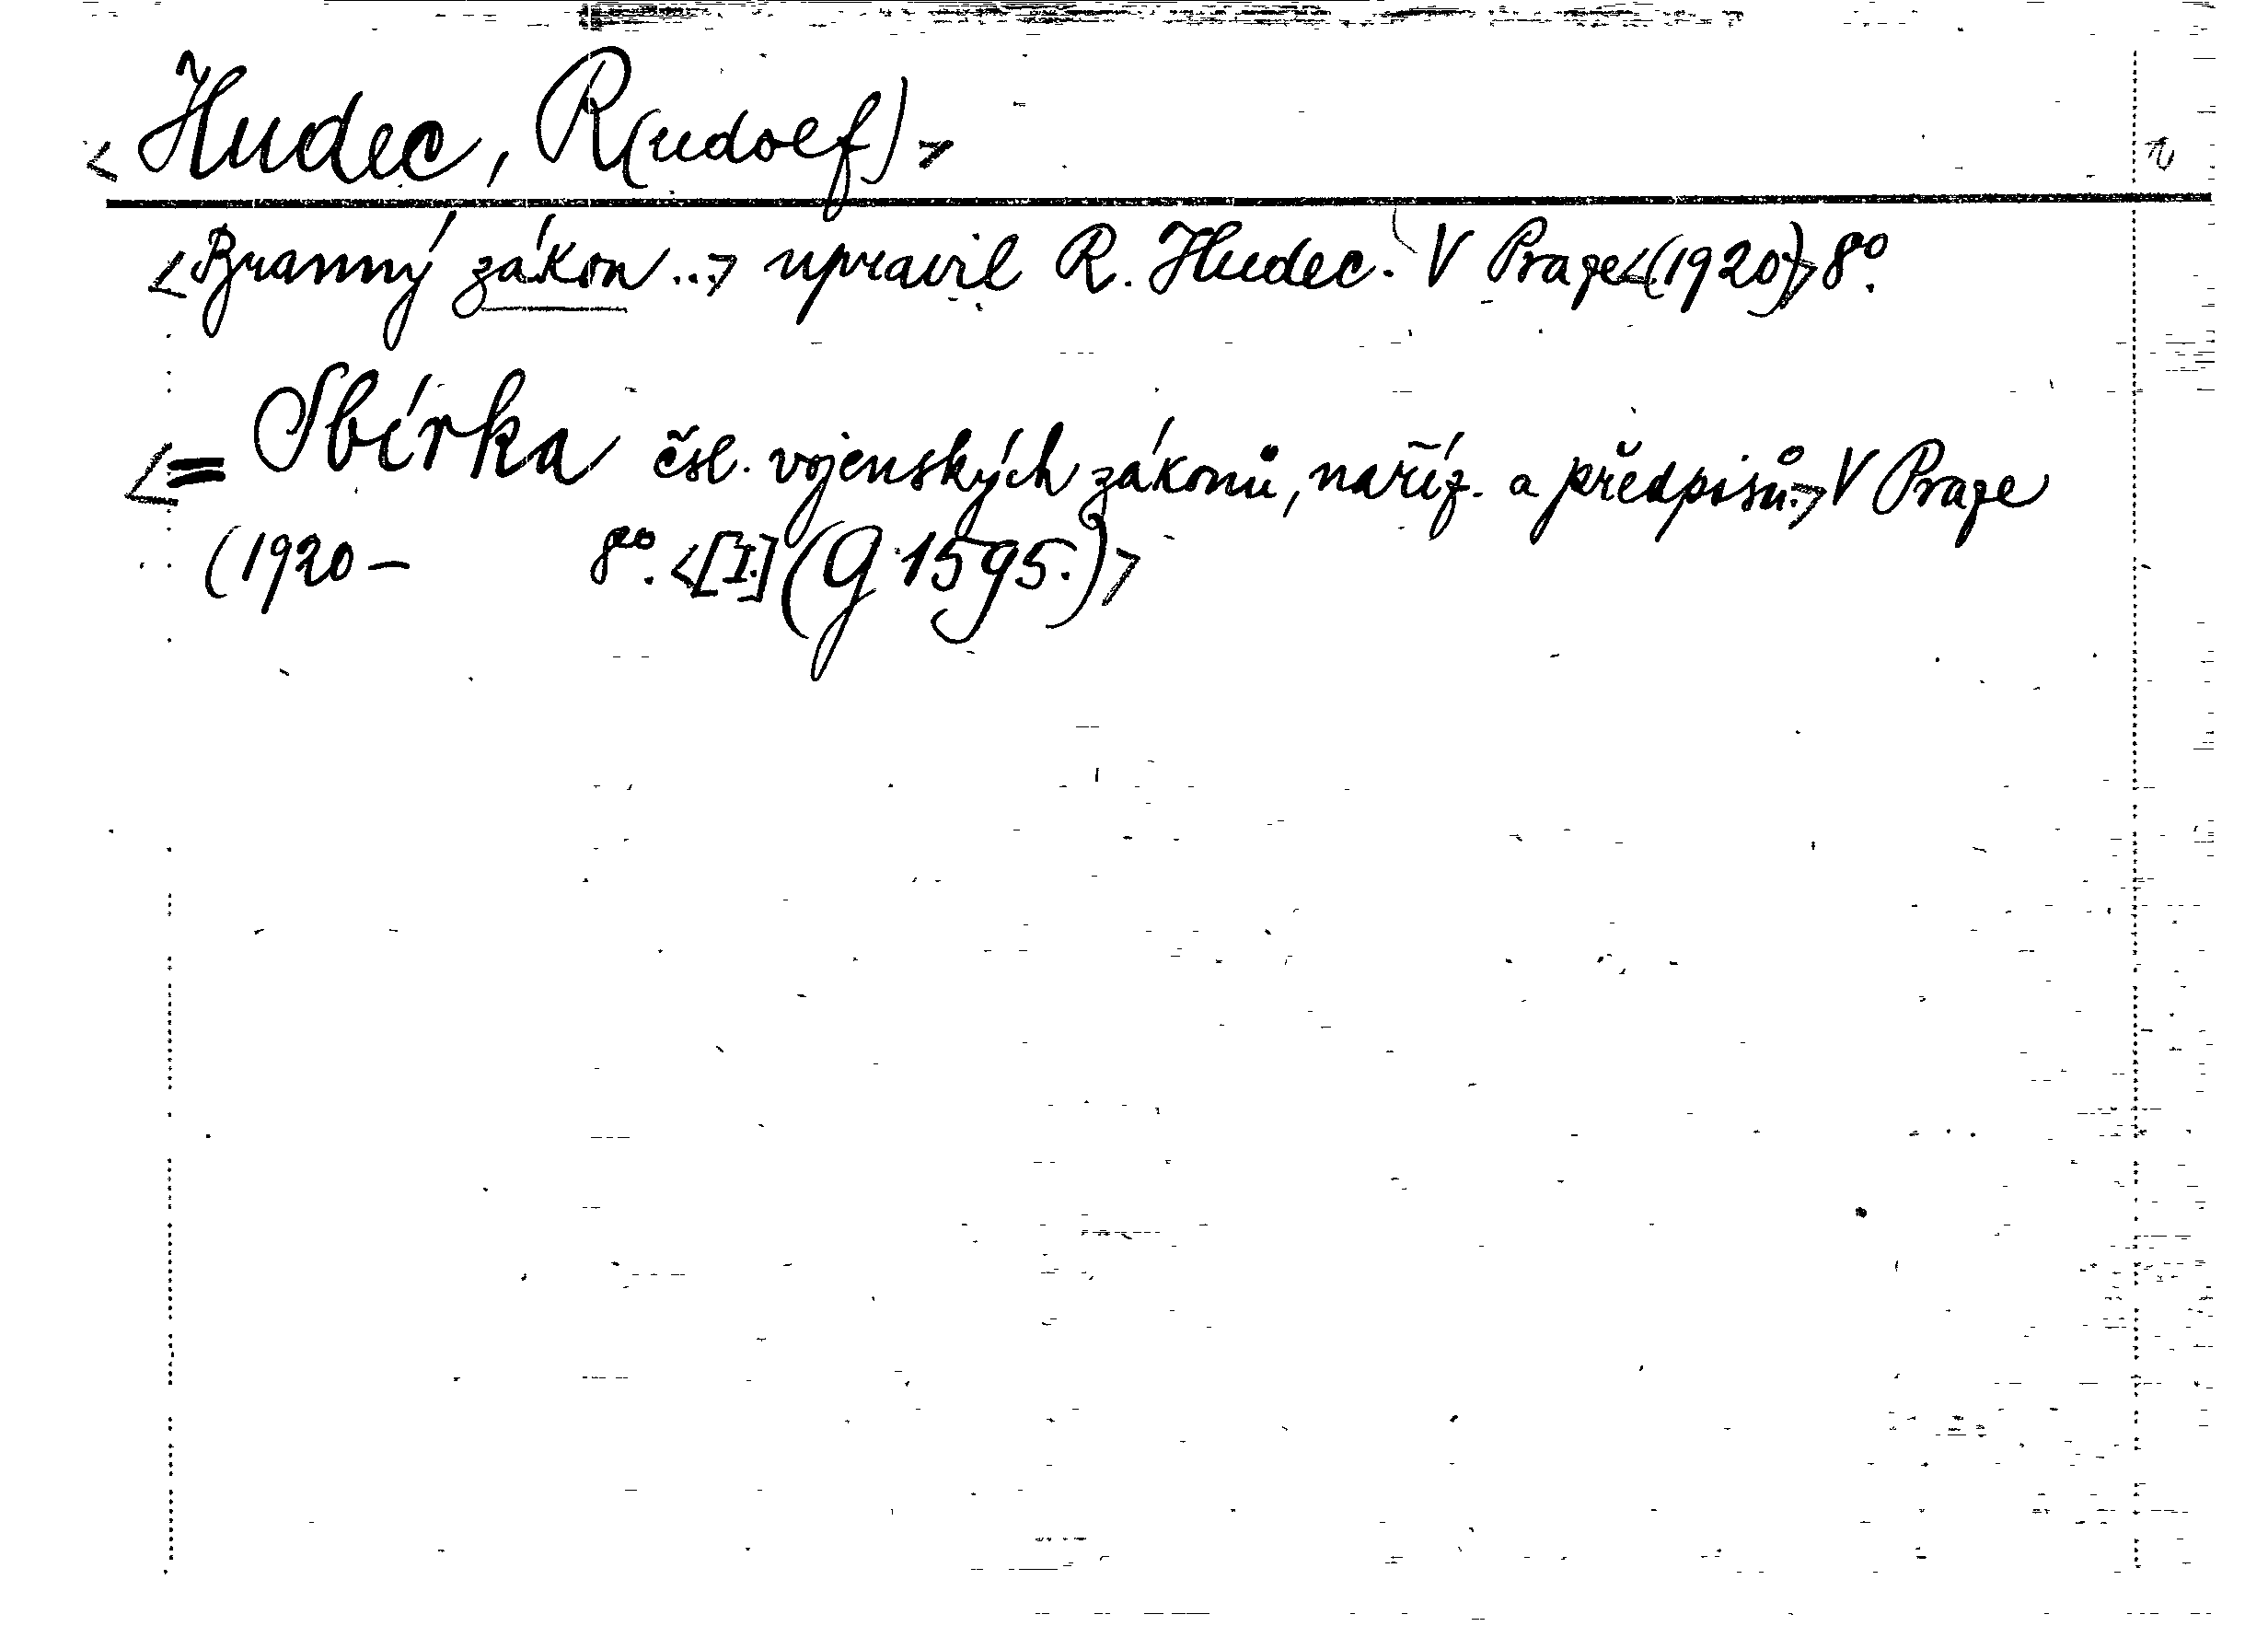 < Hudec, R(udolf) >
< Branný zákon ..> upravil R. Hudec. V Praze <(1920)> 8°.
<= Sbírka čsl. vojenských zákonů, naříz. a předpisů.> V Praze
(1920 – 8°. <[I.] (G 1595.)>